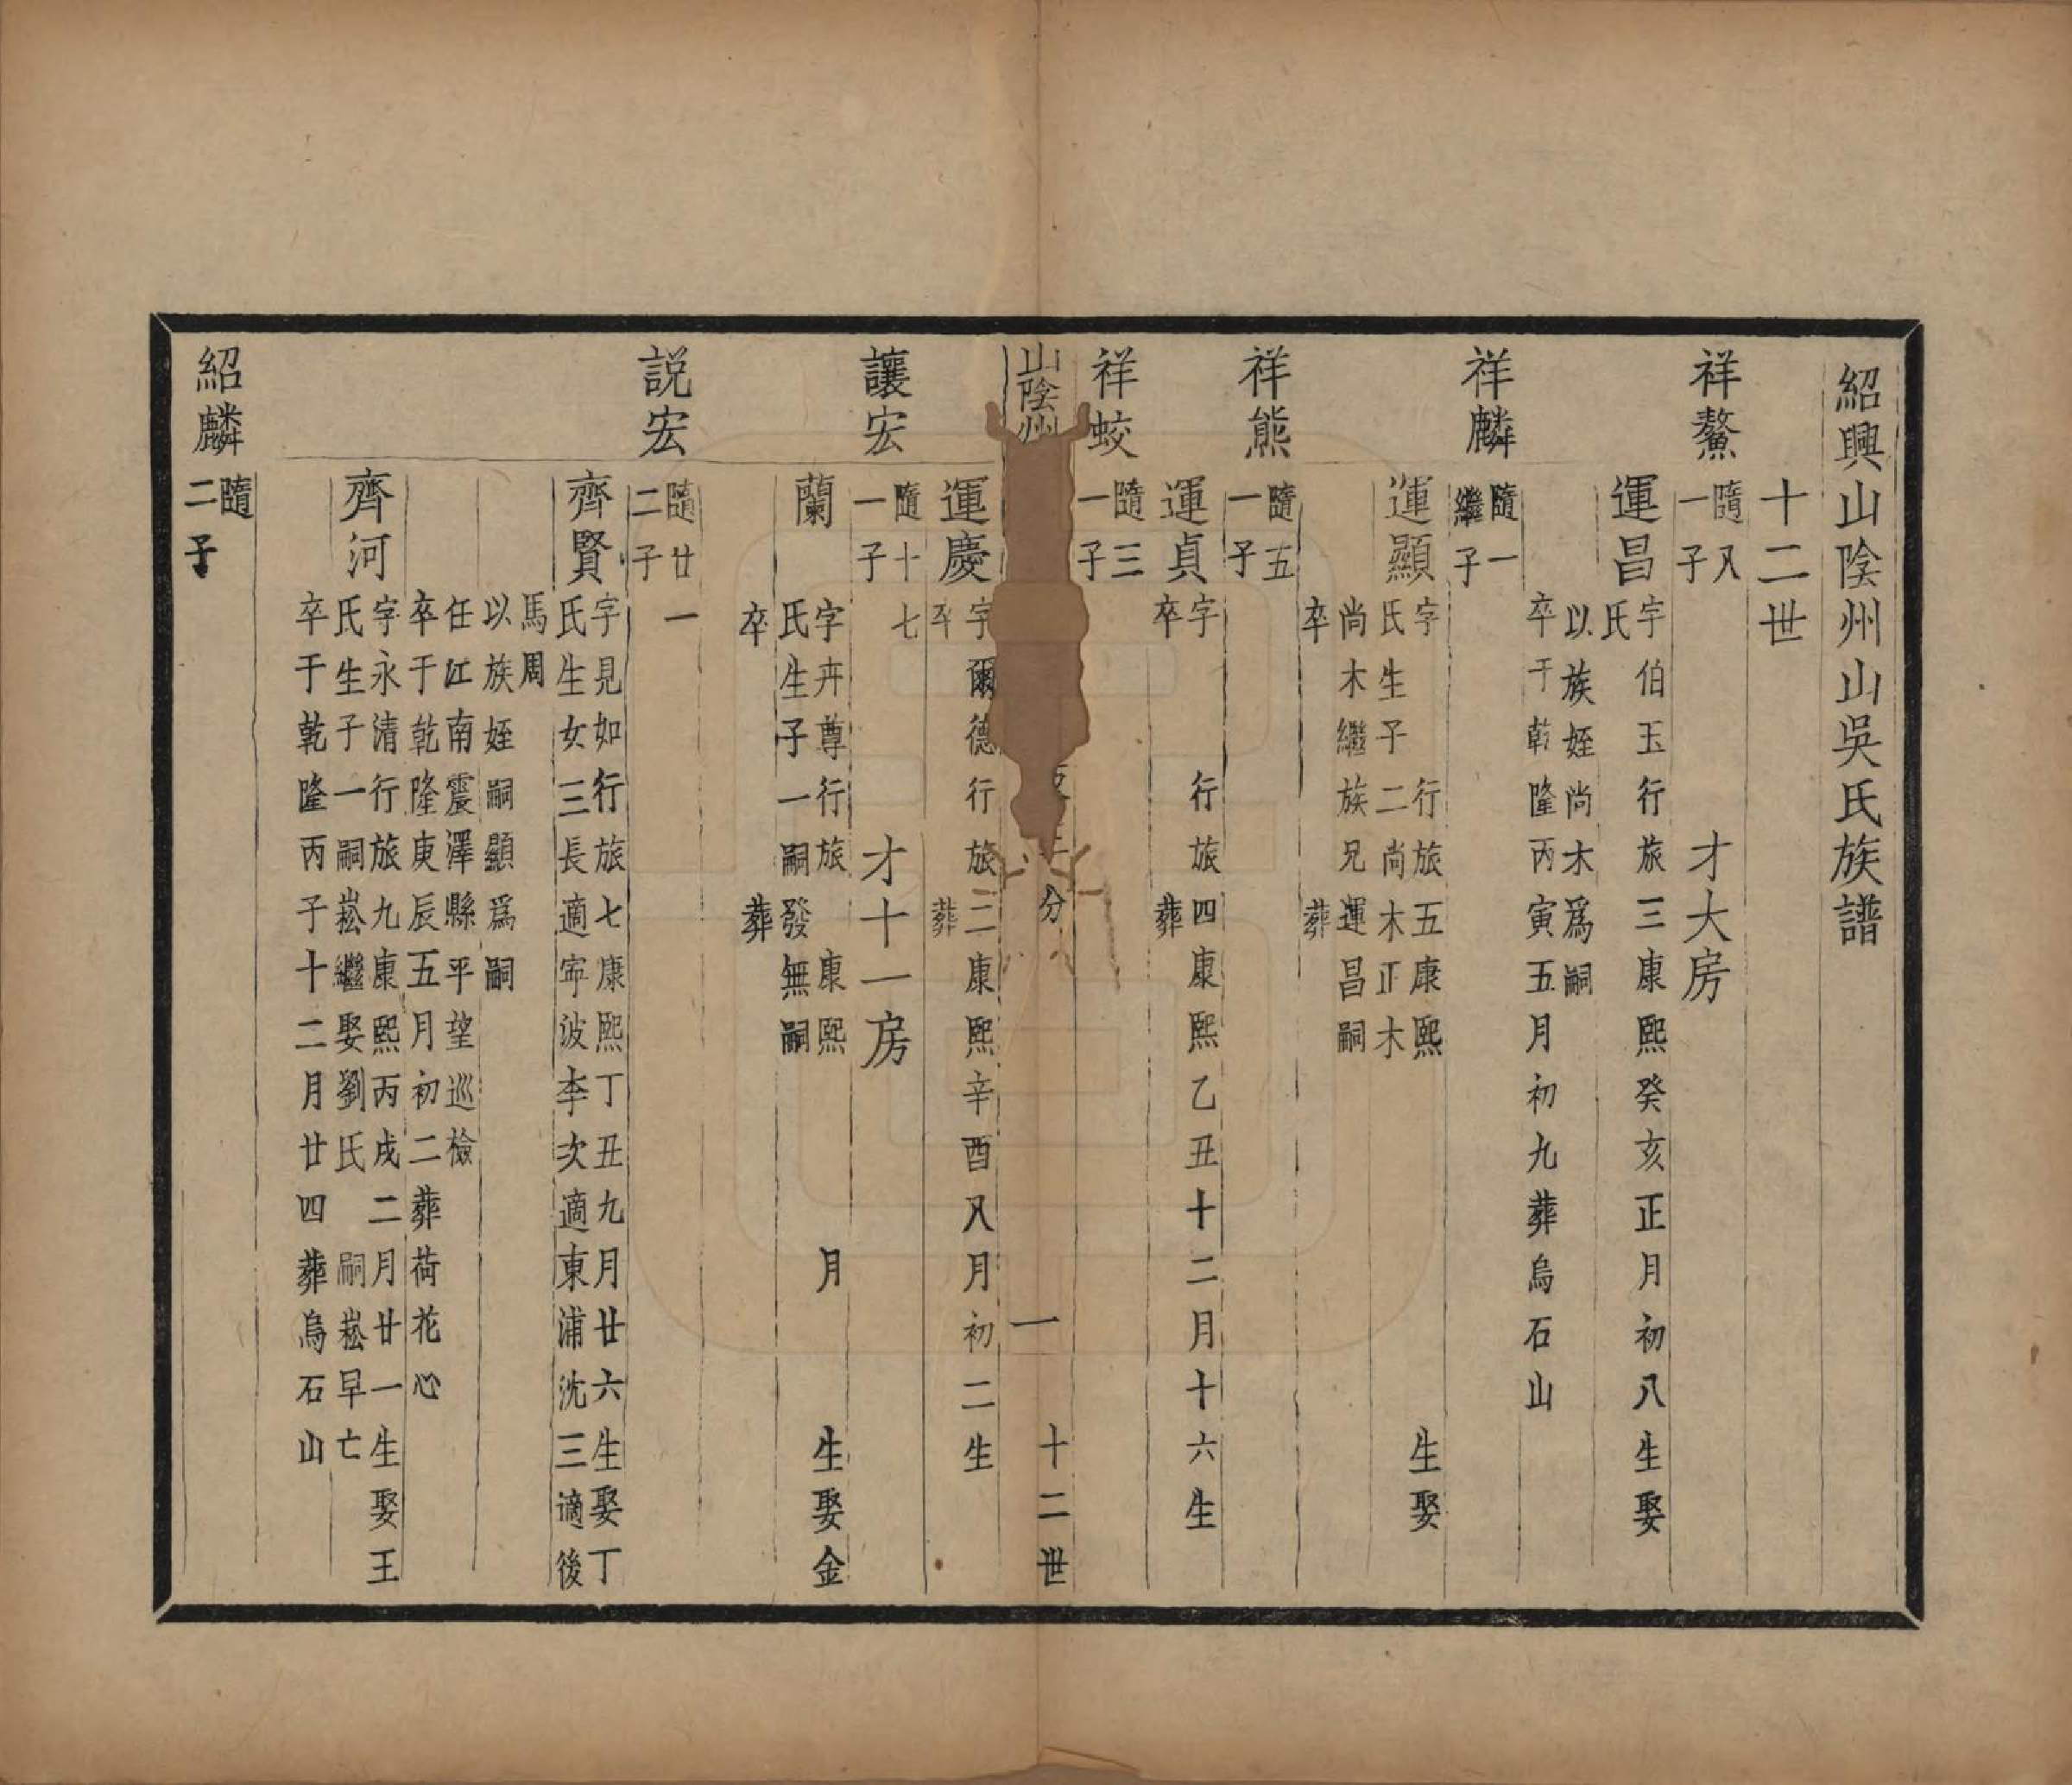 紹興山陰州山吳氏族譜
十二世
祥鰲
隨八
一子
才大房
運昌
字伯玉行旅三康熙癸亥正月初八生娶
氏
以族姪尚木爲嗣
卒于乾隆丙寅五月初九葬烏石山
祥麟
隨一
繼子
運顯
字 行旅五康熙 生娶
氏生子二尚木正木
尚木繼族兄運昌嗣
卒 葬
祥熊
隨五
一子
運貞
字 行旅四康熙乙丑十二月十六生
卒 葬
祥蛟
隨三
一子
山陰州
分
一
十二世
運慶
字爾德行旅二康熙辛酉八月初二生
卒 葬
讓宏
隨十七
一子
才十一房
蘭
字卉尊行旅 康熙 月 生娶金
氏生子一嗣發無嗣
卒 葬
説宏
隨廿一
二子
齊賢
字見如行旅七康熙丁丑九月廿六生娶丁
氏生女三長適寧波李次適東浦沈三適後
馬周
以族姪嗣顯爲嗣
任江南震澤縣平望巡檢
卒于乾隆庚辰五月初二葬荷花心
齊河
字永清行旅九康熙丙戌二月廿一生娶王
氏生子一嗣崧繼娶劉氏 嗣崧早亡
卒于乾隆丙子十二月廿四葬烏石山
紹麟
隨
二子